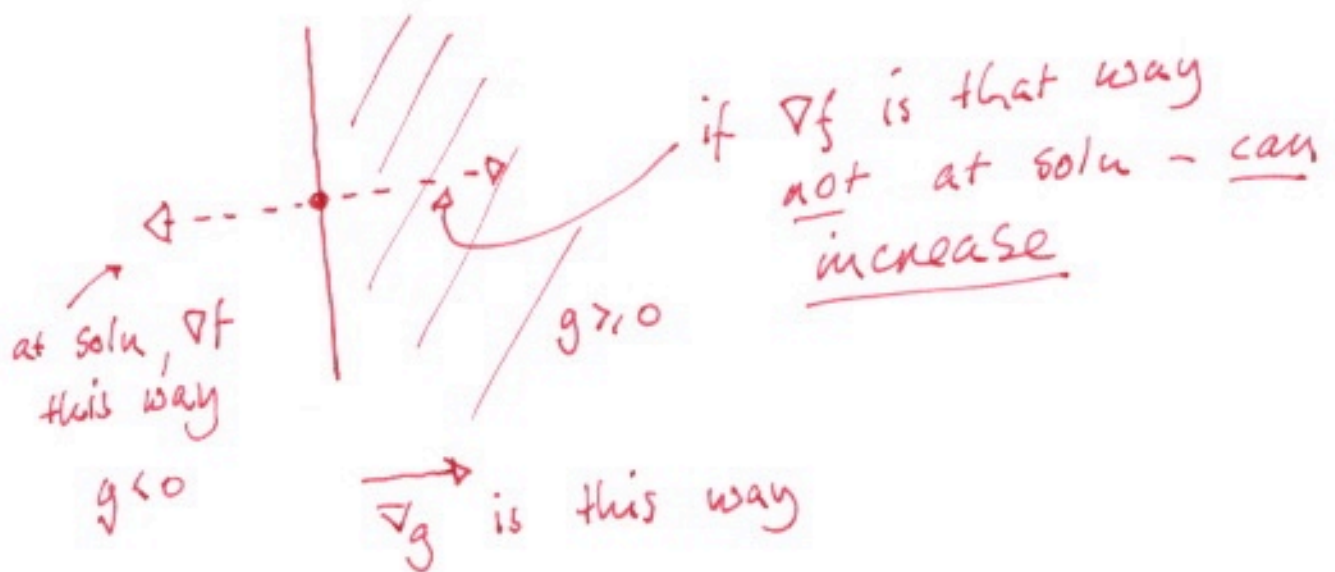 if ∇f is that way
not at soln - can
increase
at soln, ∇f
this way
g<0
g≥0
∇g is this way